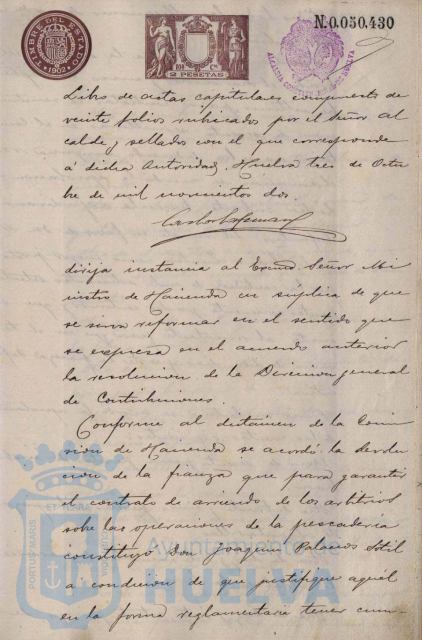 TIMBRE DEL ESTADO
1902
2 PESETAS
ALCALDIA
HUELVA
N.0.050.430
Libro de actas capitulares compuesto de
veinte folios rubricados por el Señor Al
calde y sellados con el que corresponde
á dicha Autoridad. Huelva tres de Octu
bre de mil novecientos dos.
dirija instancia al Excmo Señor Mi
nistro de Hacienda en súplica de que
se sirva reformar en el sentido que
se expresa en el acuerdo anterior
la resolucion de la Direccion general
de Contribuciones.
Conforme al dictámen de la Comi
sion de Hacienda se acordó la devolu
cion de la fianza que para garantir
el contrato de arriendo de los arbitrios
sobre las operaciones de la pescadería
constituyó Don Joaquin Palacios
á condicion de que justifique aquél
en la forma reglamentaria tener cum-
PORTUS MARIS
ET TERRAE
Ayuntamiento de
HUELVA